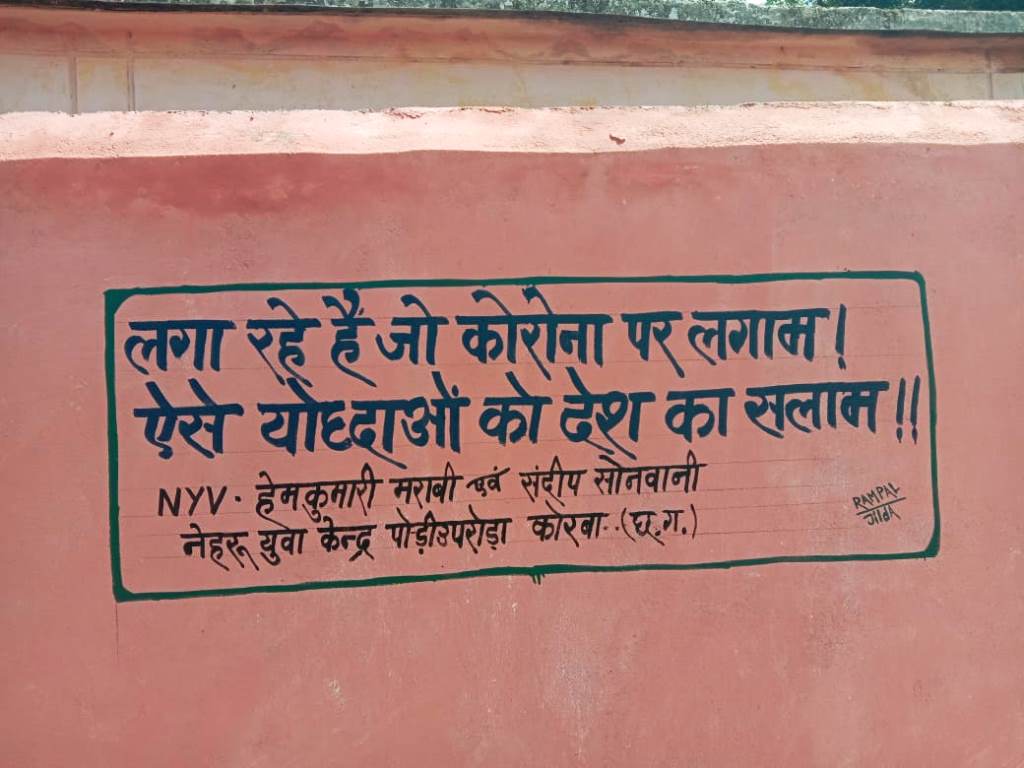 लगा रहे हैं जो कोरोना पर लगाम!
ऐसे योध्दाओं को देश का सलाम!!
NYV. हेमकुमारी मराबी एवं संदीप सोनवानी
नेहरू युवा केन्द्र पोड़ीउपरोड़ा कोरबा..(छ.ग.)
RAMPAL